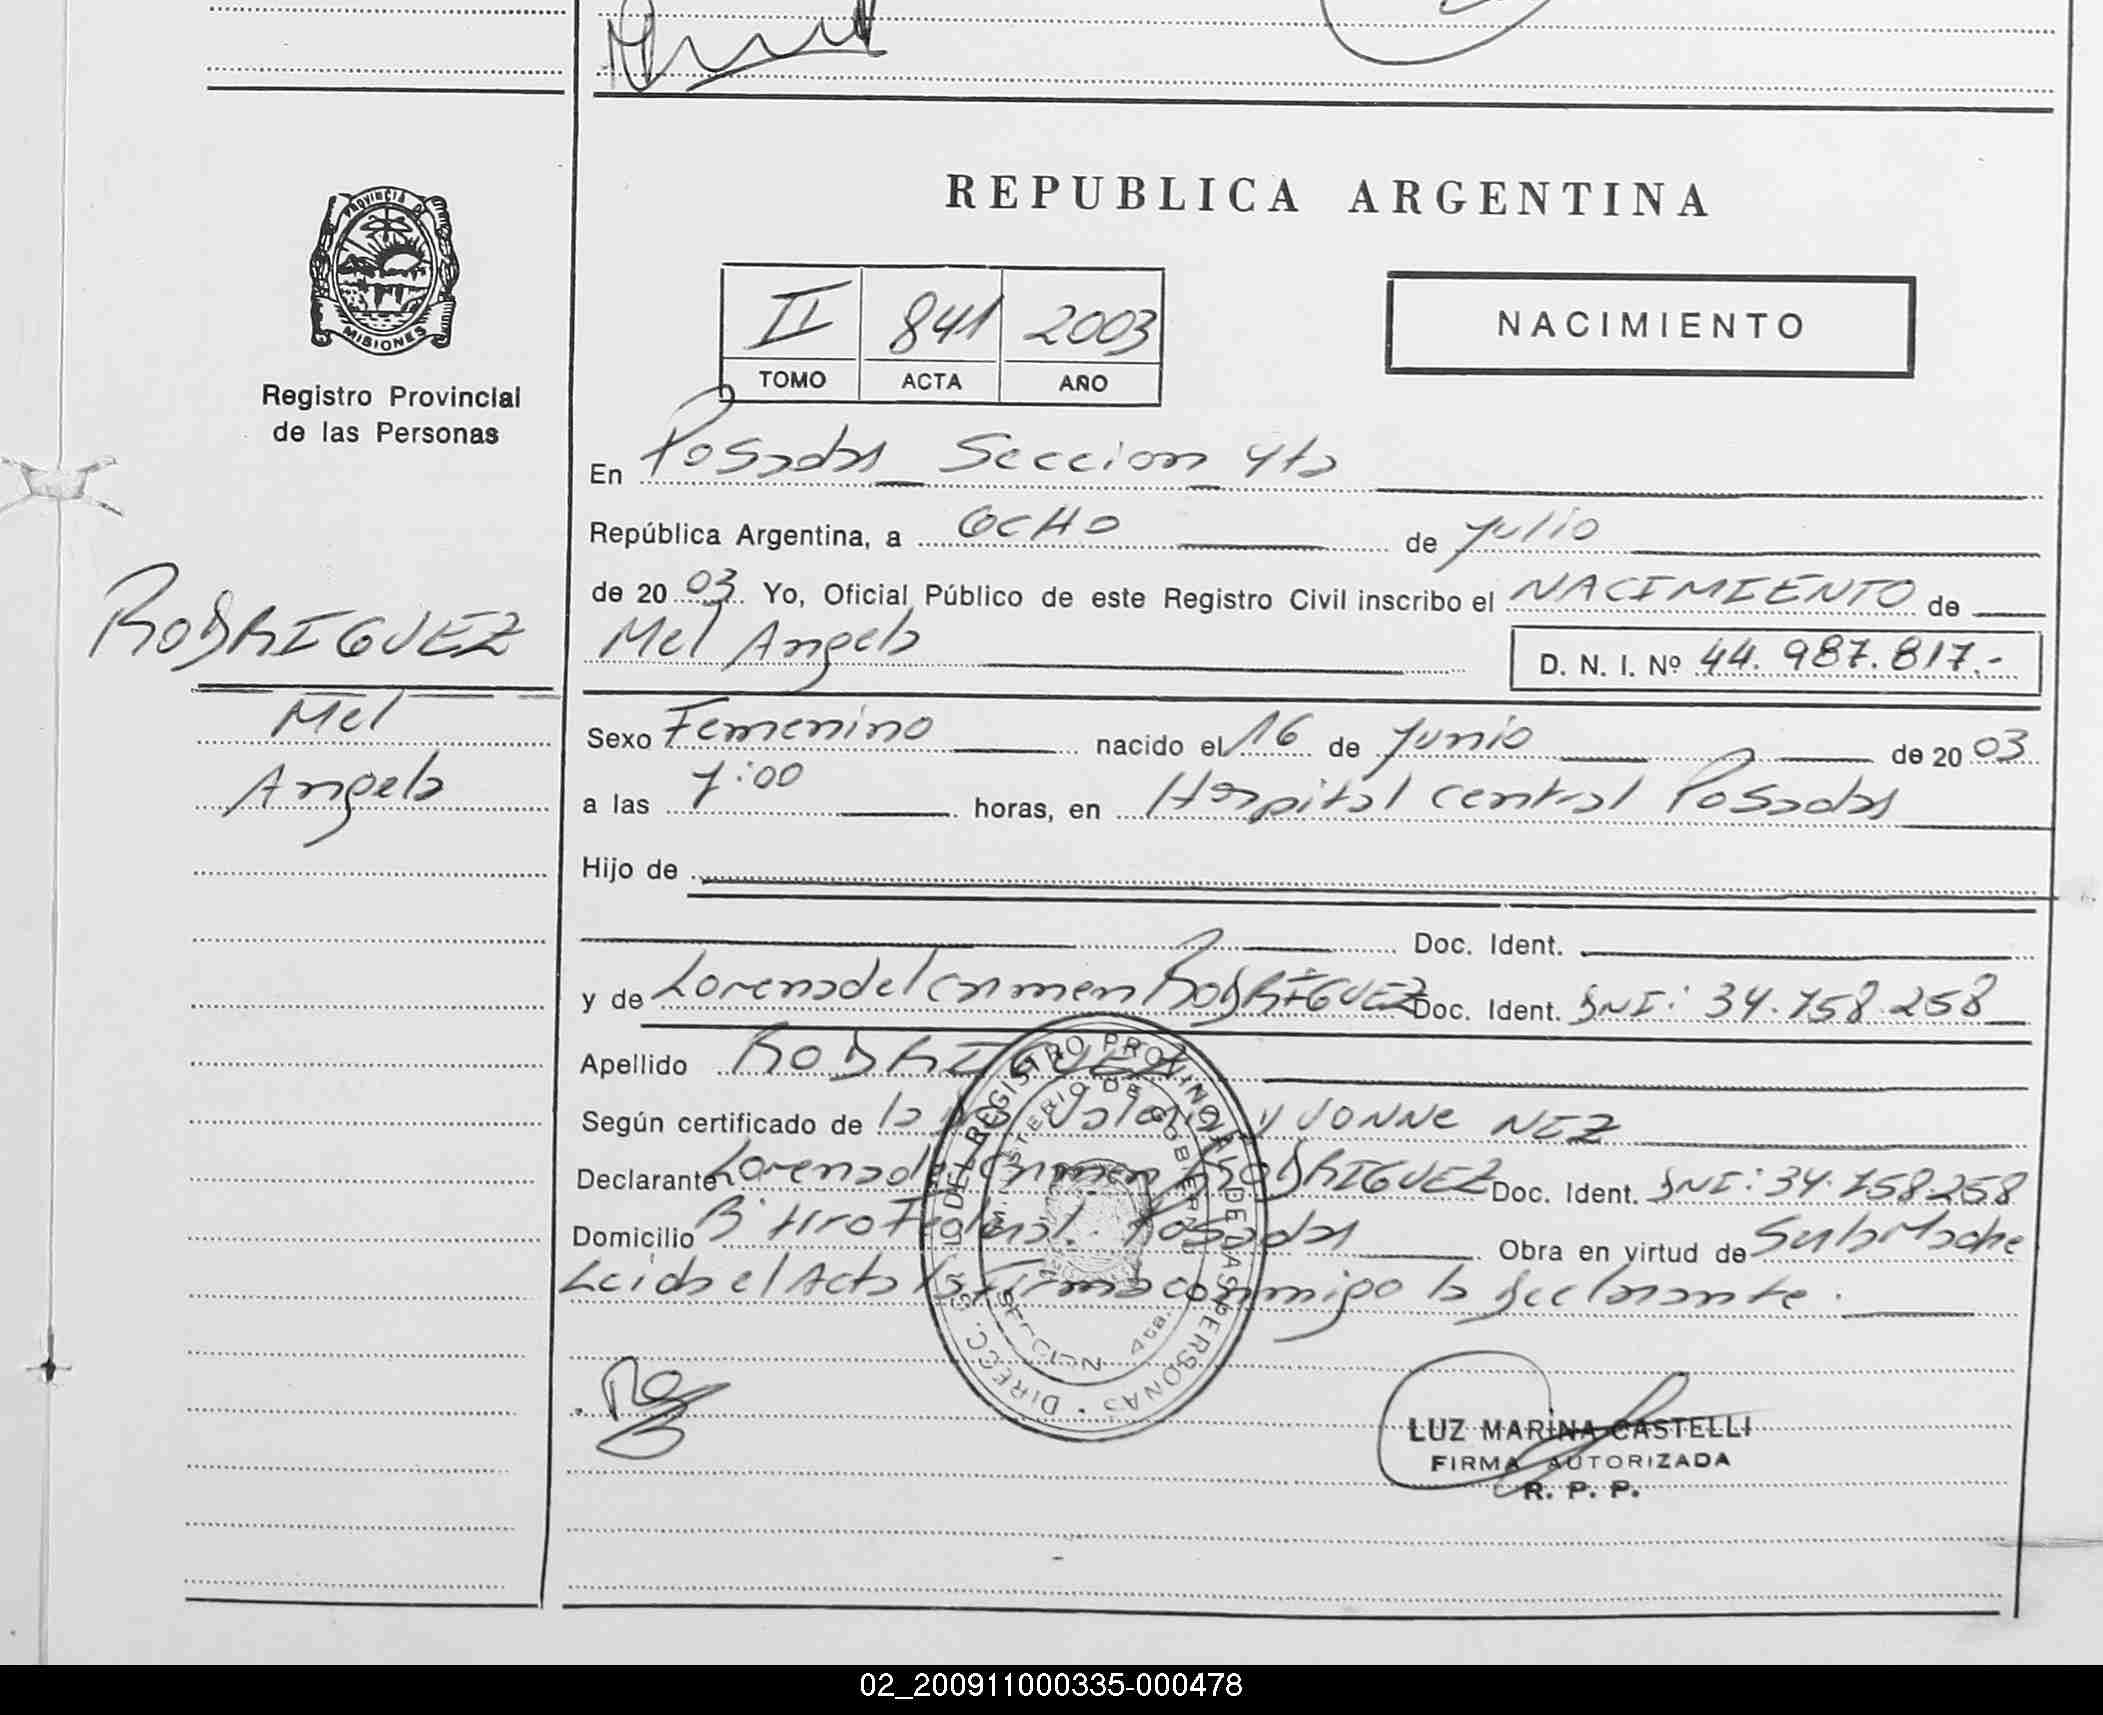 REPUBLICA ARGENTINA
PROVINCIA DE
MISIONES
Registro Provincial
de las Personas
II 841 2003
TOMO ACTA AÑO
NACIMIENTO
En Posadas Seccion 4ta
República Argentina, a OCHO de Julio
de 2003. Yo, Oficial Público de este Registro Civil inscribo el NACIMIENTO de
Mel Angela
D. N. I. Nº 44.987.817.-
RODRIGUEZ
Mel
Angela
Sexo Femenino nacido el 16 de Junio de 2003
a las 7:00 horas, en Hospital central Posadas
Hijo de
Doc. Ident.
y de Lorena del Carmen RODRIGUEZ Doc. Ident. DNI: 34.758.258
Apellido RODRIGUEZ
Según certificado de la YVONNE NEZ
Declarante Lorena del Carmen RODRIGUEZ Doc. Ident. DNI: 34.758.258
Domicilio Bº Posadas Obra en virtud de Ser la Madre
Leida el Acta la Firma conmigo la declarante.
DIRECC. GRAL. DEL REGISTRO PROVINCIAL DE LAS PERSONAS
MINISTERIO DE GOBIERNO
SECCION 4ta.
LUZ MARINA CASTELLI
FIRMA AUTORIZADA
R. P. P.
02_200911000335-000478